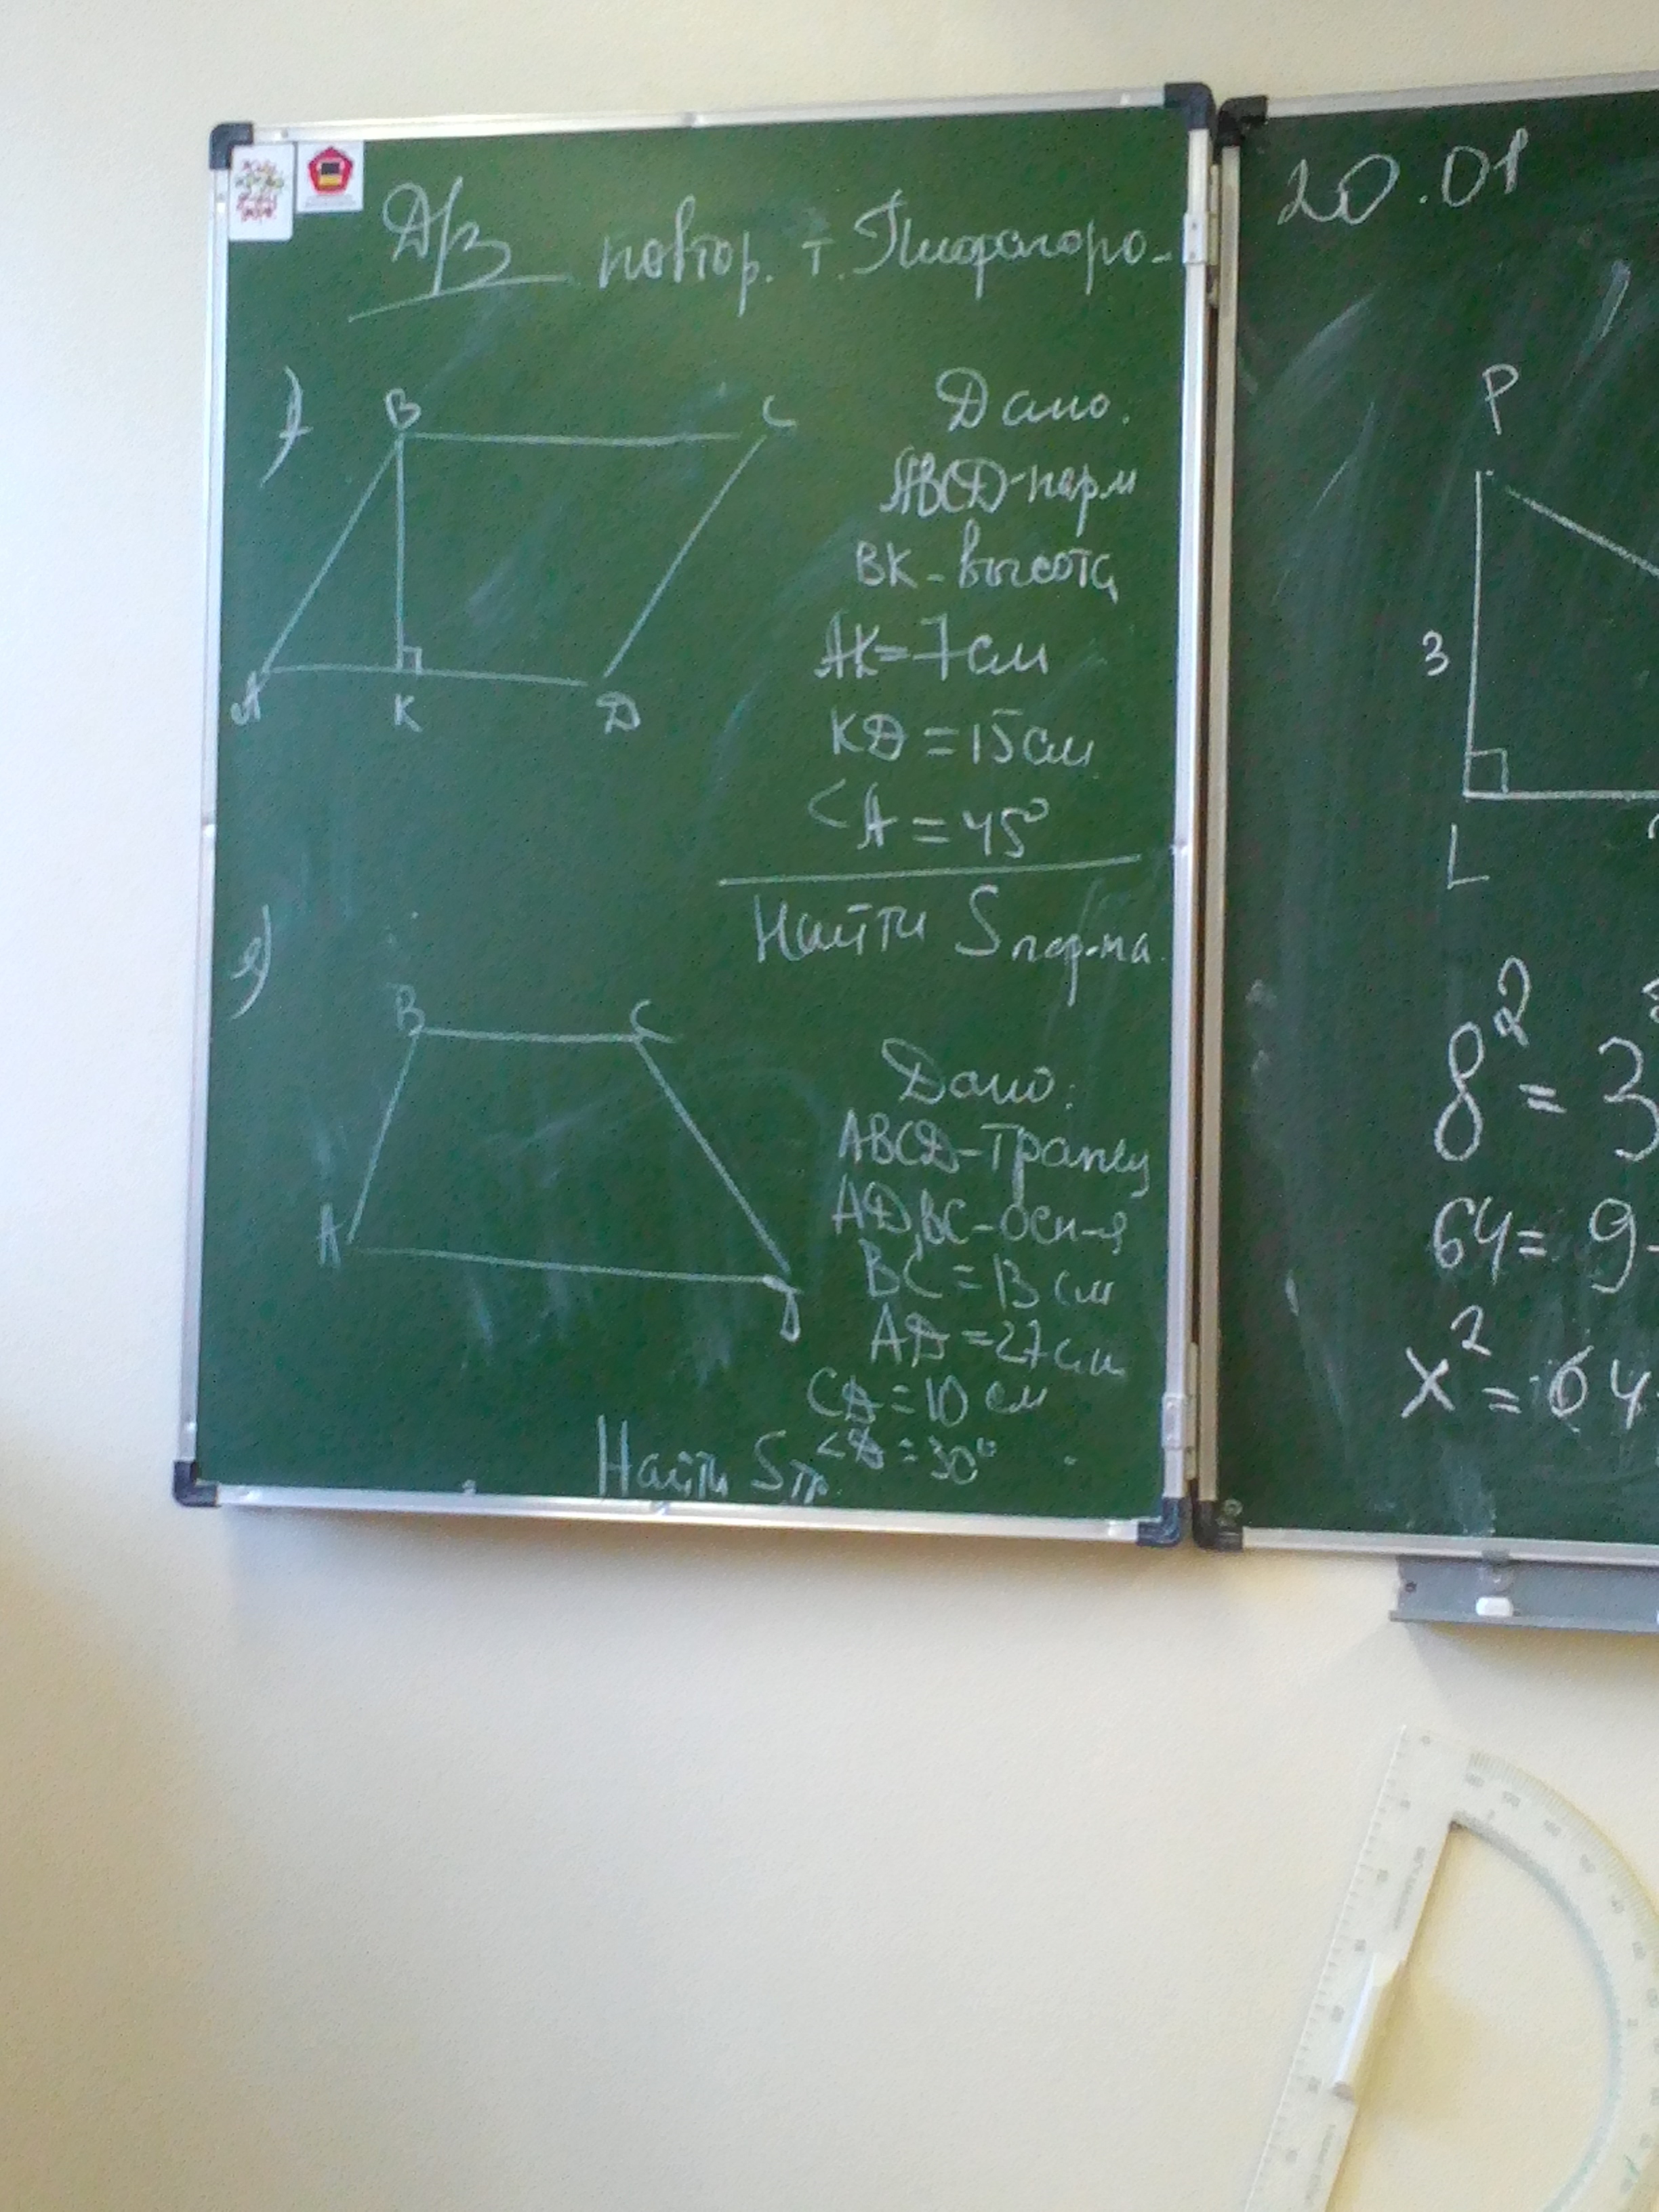 Д/з повтор. т. Пифагора
1)
B C
A K D
Дано.
ABCD-парм
BK-высота
AK=7см
KD=15см
<A=45°
Найти Sпар-ма.
2)
B C
A D
Дано:
ABCD-трапец
AD,BC-осн-я
BC=13см
AD=27см
CD=10см
<D=30°
Найти Sтр.
20.01
P
3
L
8²=3
64=9-
x²=64-